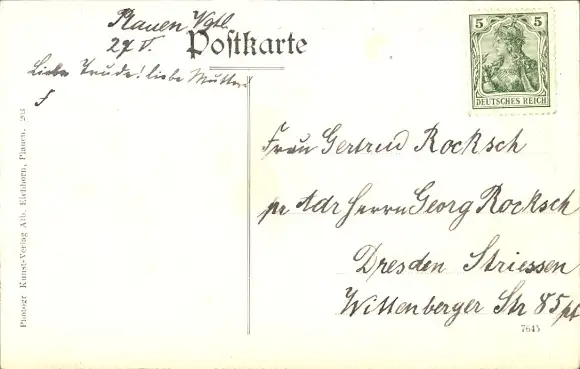 Plauen Vgtl.
27 V.
Postkarte
5 5
DEUTSCHES REICH
Liebe Trude! liebe Mutter!
Frau Gertrud Rocksch
pr Adr Herrn Georg Rocksch
Dresden Striessen
Wittenberger Str 85 pt
7645
Photogr Kunst-Verlag Alb. Eichhorn, Plauen. 263